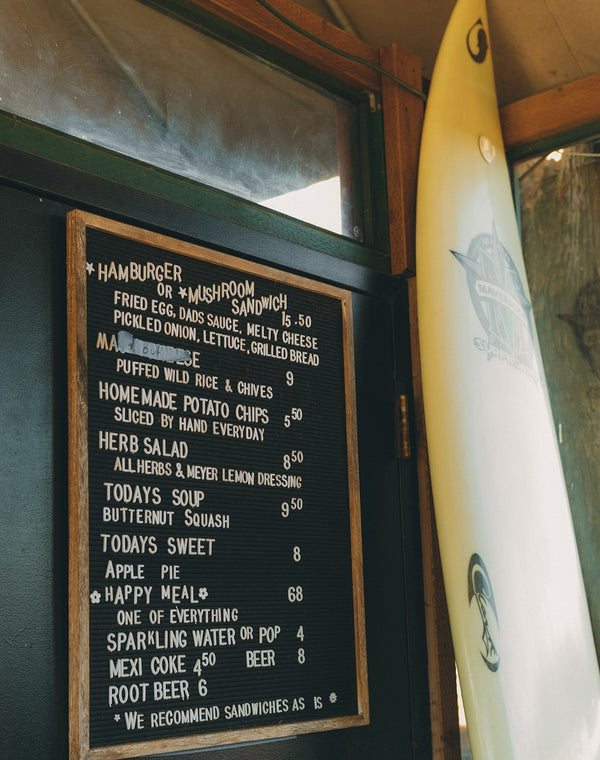 *HAMBURGER
OR *MUSHROOM
SANDWICH 15.50
FRIED EGG, DADS SAUCE, MELTY CHEESE
PICKLED ONION, LETTUCE, GRILLED BREAD
9
PUFFED WILD RICE & CHIVES
HOMEMADE POTATO CHIPS 5⁵⁰
SLICED BY HAND EVERYDAY
HERB SALAD 8⁵⁰
ALL HERBS & MEYER LEMON DRESSING
TODAYS SOUP 9⁵⁰
BUTTERNUT SQUASH
TODAYS SWEET 8
APPLE PIE
*HAPPY MEAL* 68
ONE OF EVERYTHING
SPARKLING WATER OR POP 4
MEXI COKE 4⁵⁰ BEER 8
ROOT BEER 6
*WE RECOMMEND SANDWICHES AS IS*